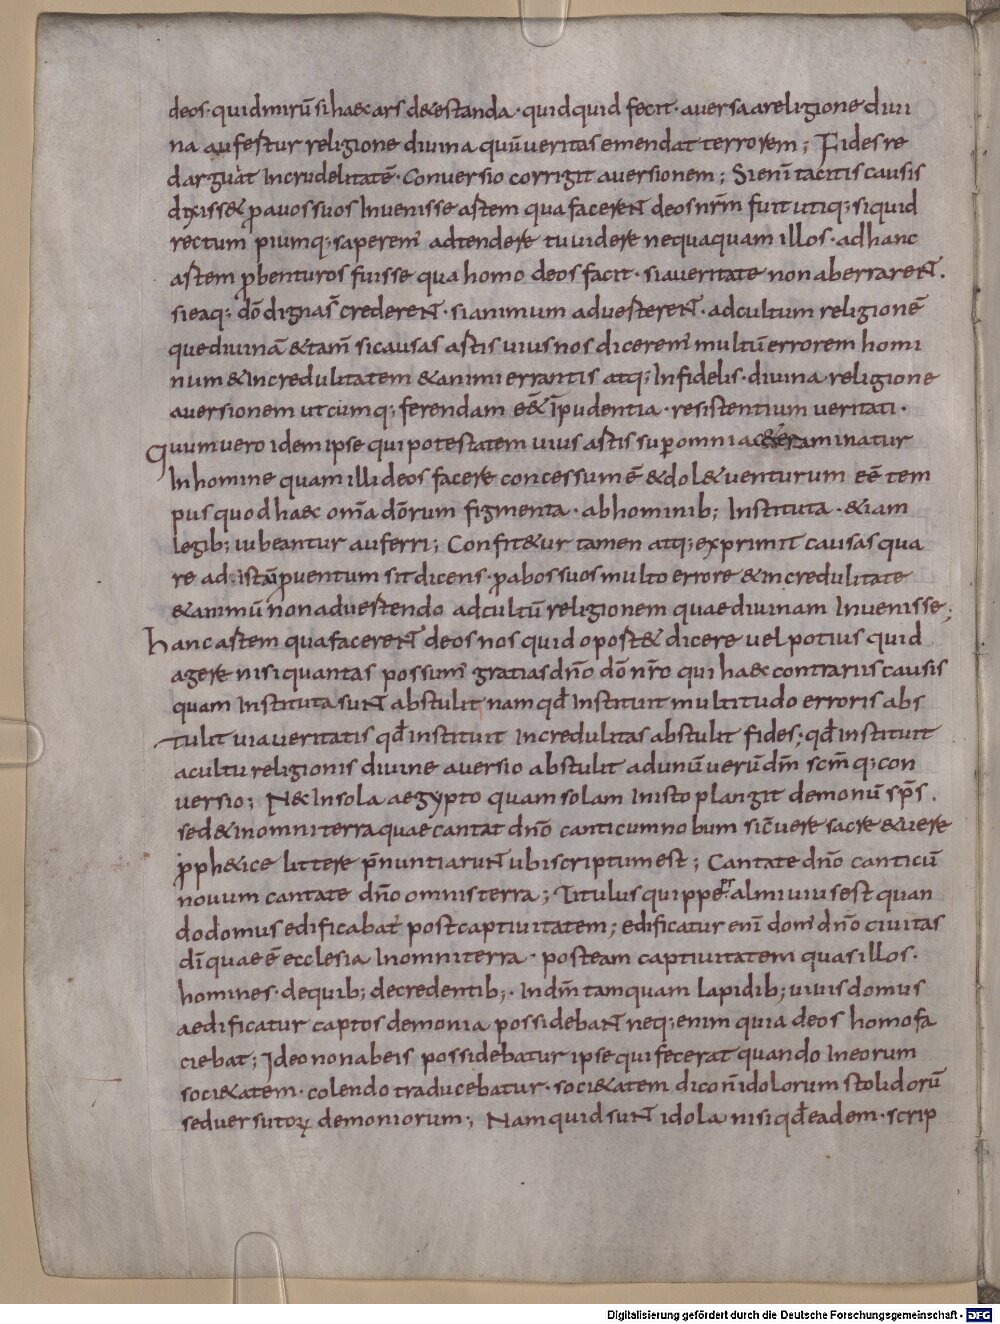 deos · quid mirũ si haec ars d&estanda · quidquid fecit · aversa a religione divi
na aufertur religione divina quũ veritas emendat terrorem ; Fides re
darguat Incrudelitatẽ · Conversio corrigit aversionem ; Si enĩ tacitis causis
dixiss& pavos suos Invenisse artem qua facerent deos nr̃m fuit utiq; siquid
rectum piumq; saperem adtendere tu videre nequaquam illos · ad hanc
artem pventuros fuisse qua homo deos facit · si a veritate non aberrarent ·
si eaq; dõ digna s̃ crederent · si animum adverterent · ad cultum religionẽ
que divinã &tam̃ si causas artis uius nos dicerem multũ errorem homi
num & Incredulitatem & animi errantis atq; Infidelis · divina religione
aversionem utcumq; ferendam eẽ& Ĩpudentia · resistentium veritati ·
Quum vero idem ipse qui potestatem uius artis sup omnia c&era minatur
In homine quam illi deos facere concessum ẽ & dol& venturum eẽ tem
pus quod haec om̃a dõrum figmenta · ab hominib; Instituta · &iam
legib; iubeantur auferri ; Confit&ur tamen atq; exprimit causas qua
re ad ista pventum sit dicens · pabos suos multo errore & incredulitate
& animũ non advertendo ad cultũ religionem quae divinam Invenisse ;
hanc artem qua facerent deos nos quid oport& dicere vel potius quid
agere nisi quantas possum̃ gratias dño dõ nr̃o qui haec contrariis causis
quam Instituta sunt abstulit nam qd̃ Instituit multitudo erroris abs
tulit via veritatis qd̃ instituit Incredulitas abstulit fides ; qd̃ instituit
a cultu religionis divine aversio abstulit ad unũ verũ dm̃ scm̃ q; con
versio ; Nec In sola aegypto quam solam In isto plangit demonũ sps̃ ·
sed & in omni terra quae cantat dño canticum nobum sic̃ vere sacre & vere
pph&ice littere p̃nuntiarunt ubi scriptum est ; Cantate dño canticũ
novum cantate dño omnis terra ; Titulus quippe psalmi uius est quan
do domus edificabat' post captivitatem ; edificatur enĩ dom' dño civitas
dĩ quae ẽ ecclesia In omni terra · post eam captivitatem quas illos ·
homines · de quib; de credentib; · In dm̃ tamquam lapidib; vivis domus
aedificatur captos demonia possidebant neq; enim quia deos homo fa
ciebat ; Ideo non ab eis possidebatur ipse qui fecerat quando In eorum
soci&atem · colendo traducebatur · soci&atem dico ñ idolorum stolidorũ
sed versutorꝝ demoniorum ; Nam quid sunt idola nisi qd̃ eadem · scrip
Digitalisierung gefördert durch die Deutsche Forschungsgemeinschaft - DFG